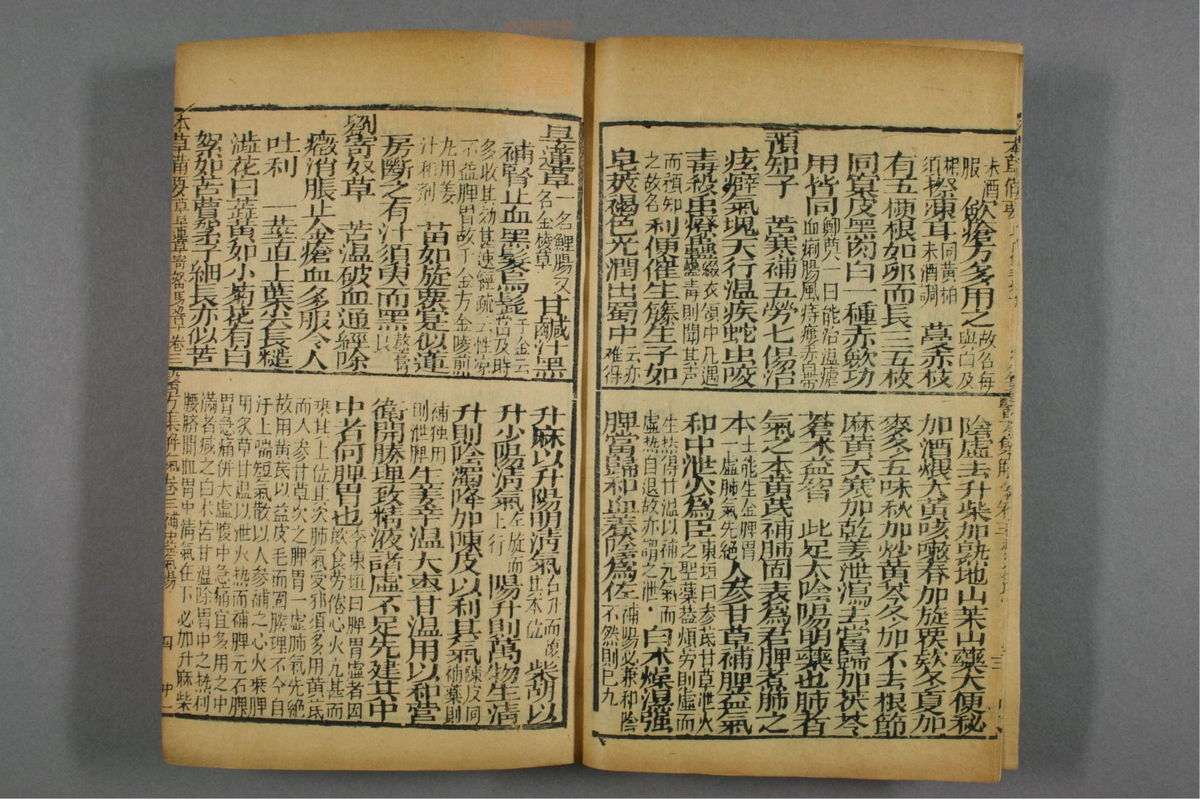 末酒服 斂瘡方多用之 故名每與白及
相須 搽凍耳 同黃柏末酒調 蔓赤枝
有五椏根如卵而長三五枚
同窠皮黑肉白一種赤斂功
用皆同 鄭奠一曰能治溫瘧血痢腸風痔瘻赤白帶
預知子 苦寒補五勞七傷治
痃癖氣塊天行溫疾蛇虫咬
毒殺虫療蠱 綴衣領中凡遇蠱毒則聞其聲
而預知之故名 利便催生籐生子如
皂莢褐色光潤出蜀中 云亦難得
陰虛去升柴加熟地山茱山藥大便秘
加酒煨大黃咳嗽春加旋覆欵冬夏加
麥冬五味秋加炒黃芩冬加不去根節
麻黃天寒加乾姜泄瀉去當歸加茯苓
蒼朮益智 此足太陰陽明藥也肺者
氣之本黃芪補肺固表為君脾者肺之
本 土能生金脾胃一虛肺氣先絕 人參甘草補脾益氣
和中泄火為臣 東垣曰參芪甘草泄火之聖藥蓋煩勞則虛而
生热得甘溫以補元氣而虛热自退故亦謂之泄 白朮燥濕強
脾當歸和血養陰為佐 補陽必兼和陰不然則已九
旱蓮草 一名鯉腸又名金稜草 甘鹹汁黑
補腎止血黑髮烏髭 千金云當及時
多收其効甚速經疏云性寒不益脾胃故千金方金陵煎
丸用姜汁和劑 苗如旋覆是似蓮
房斷之有汁須臾而黑 熬膏良
劉寄奴草 苦溫破血通經除
癥消脹止金瘡血多服令人
吐利 一莖直上葉尖長糙
澁花白蕋黃如小菊花有白
絮如苦蕒絮子細長亦似苦
升麻以升陽明清氣 右升而復其本位 柴胡以
升少陽清氣 左旋而上行 陽升則萬物生清
升則陰濁降加陳皮以利其氣 陳皮同補藥則
補獨用則泄脾 生姜辛溫大棗甘溫用以和營
衛開腠理致精液諸虛不足先建其中
中者何脾胃也 李東垣曰脾胃虛者因飲食勞倦心火亢甚而
乘其土位其次肺氣受邪須多用黃芪而人參甘草次之脾胃一虛肺氣先絕
故用黃芪以益皮毛而固腠理不令自汗上喘短氣散以人參補之心火乘脾
用炙草甘溫以泄火热而補脾元若脾胃急痛併大虛腹中急縮宜多用之中
滿者減之白朮苦甘溫除胃中之热利腰臍間血胃中清氣在下必加升麻柴
本草備要 草 旱蓮草 劉寄奴草 卷二 醫方集解 補氣 卷三 補中益氣湯 四